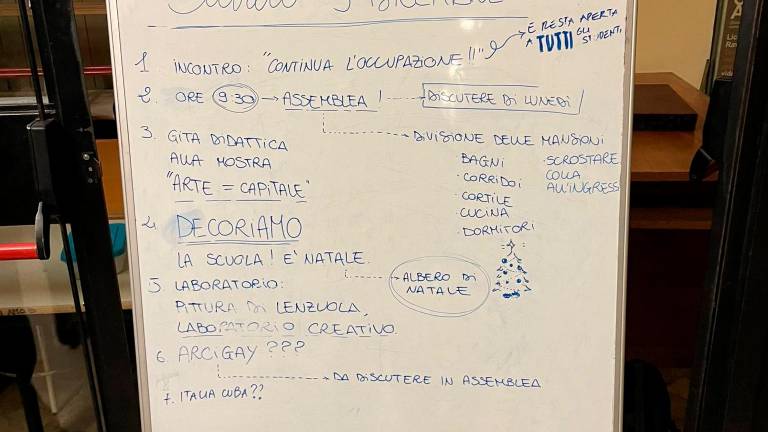 È RESTA APERTA
A TUTTI GLI STUDENTI
1. INCONTRO: "CONTINUA L'OCCUPAZIONE!!"
2. ORE 9:30 → ASSEMBLEA! → DISCUTERE DI LUNEDÌ
→ DIVISIONE DELLE MANSIONI
BAGNI
· CORRIDOI
· CORTILE
· CUCINA
· DORMITORI
· SCROSTARE
COLLA
ALL'INGRESS
3. GITA DIDATTICA
ALLA MOSTRA
"ARTE = CAPITALE"
4. DECORIAMO
LA SCUOLA! E' NATALE.
→ ALBERO DI
NATALE
5. LABORATORIO:
PITTURA DI LENZUOLA,
LABORATORIO CREATIVO.
6. ARCIGAY ???
→ DA DISCUTERE IN ASSEMBLEA
7. ITALIA CUBA??